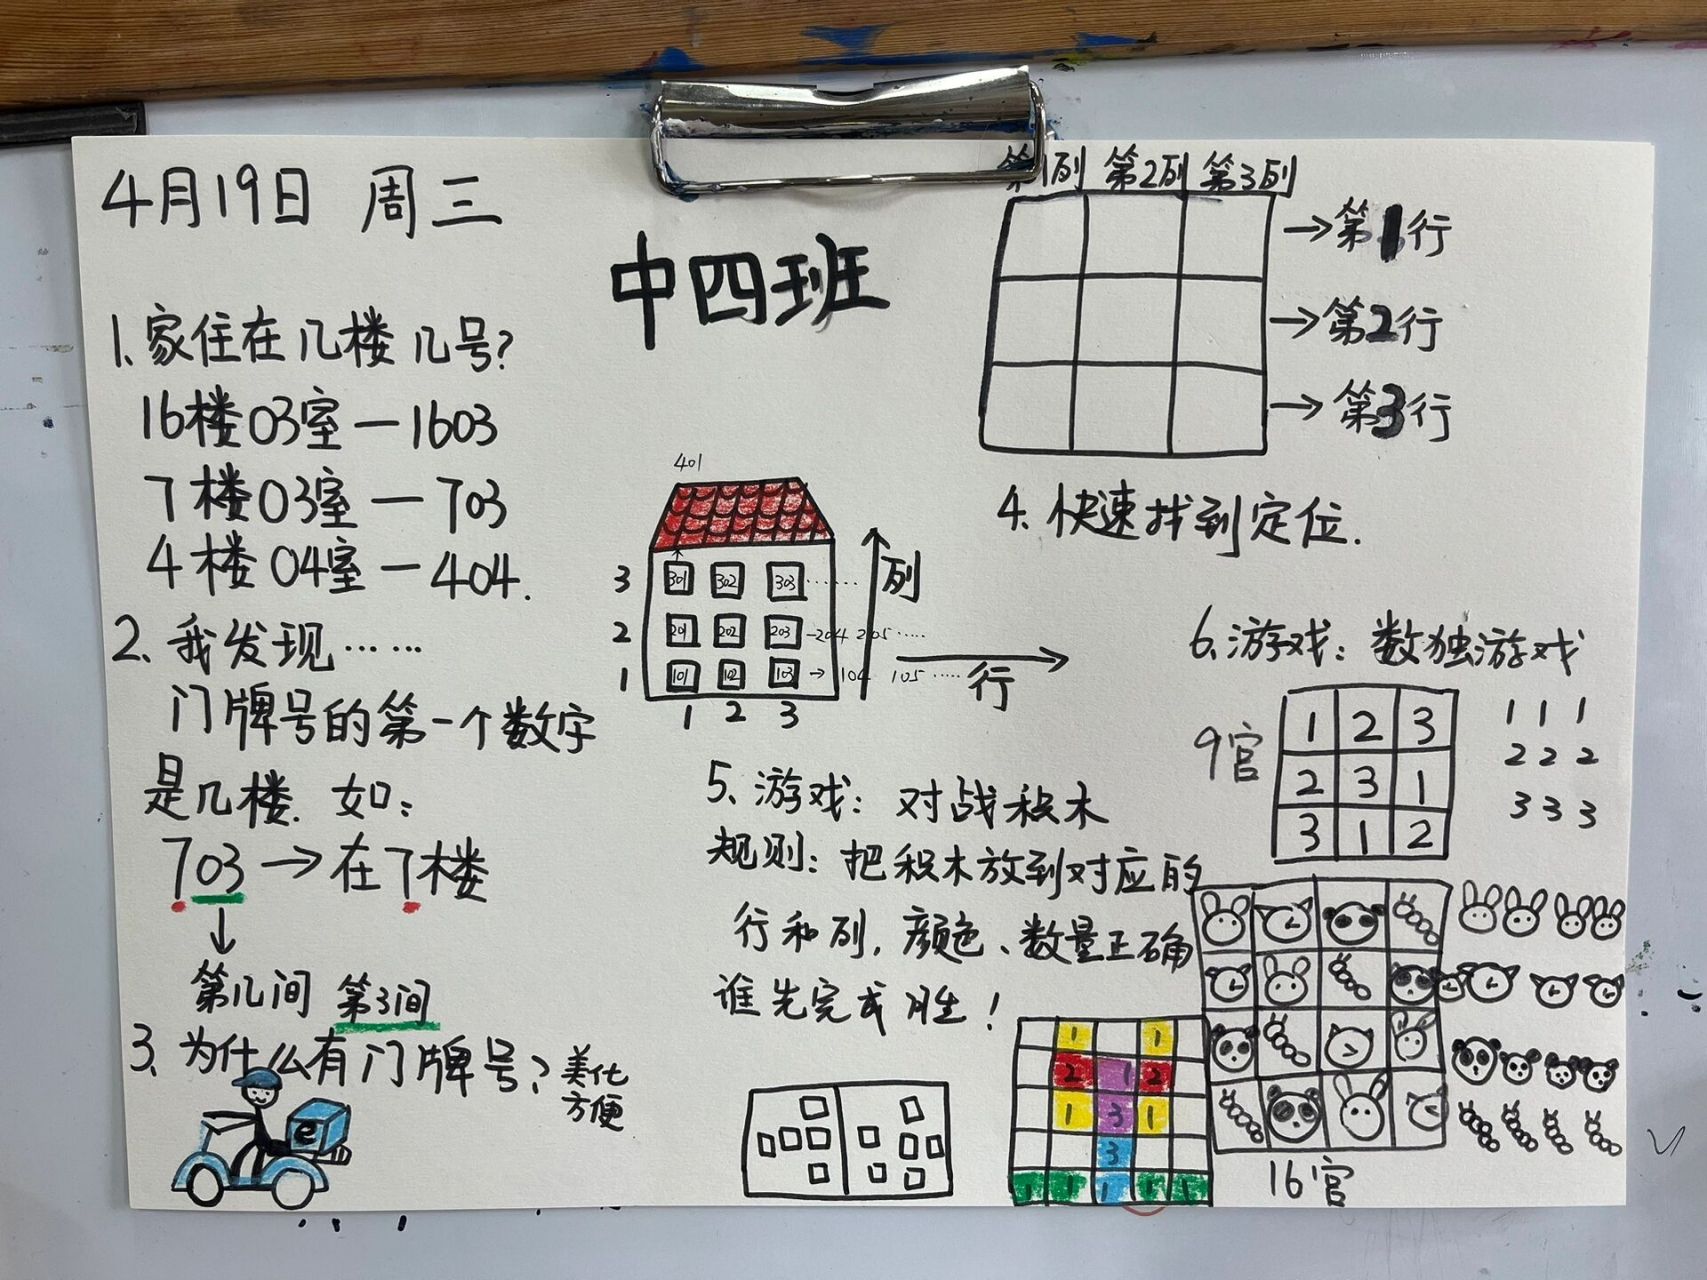 4月19日 周三
中四班
1.家住在几楼几号?
16楼03室—1603
7楼03室—703
4楼04室—404.
2、我发现……
门牌号的第一个数字
是几楼.如:
703→在7楼
第几间 第3间
3、为什么有门牌号? 美化
方便
e
第1列 第2列 第3列
→第1行
→第2行
→第3行
4.快速找到定位.
401
3 301 302 303 ······
2 201 202 203 -204 205 ·····
1 101 102 103 → 104 105 ·····
1 2 3
列
行
5、游戏:对战积木
规则:把积木放到对应的
行和列,颜色、数量正确
谁先完成 胜!
1 1
2 1 2
1 3 1
3
1 1 1 1 1
6.游戏:数独游戏
9官
1 2 3
2 3 1
3 1 2
1 1 1
2 2 2
3 3 3
16官